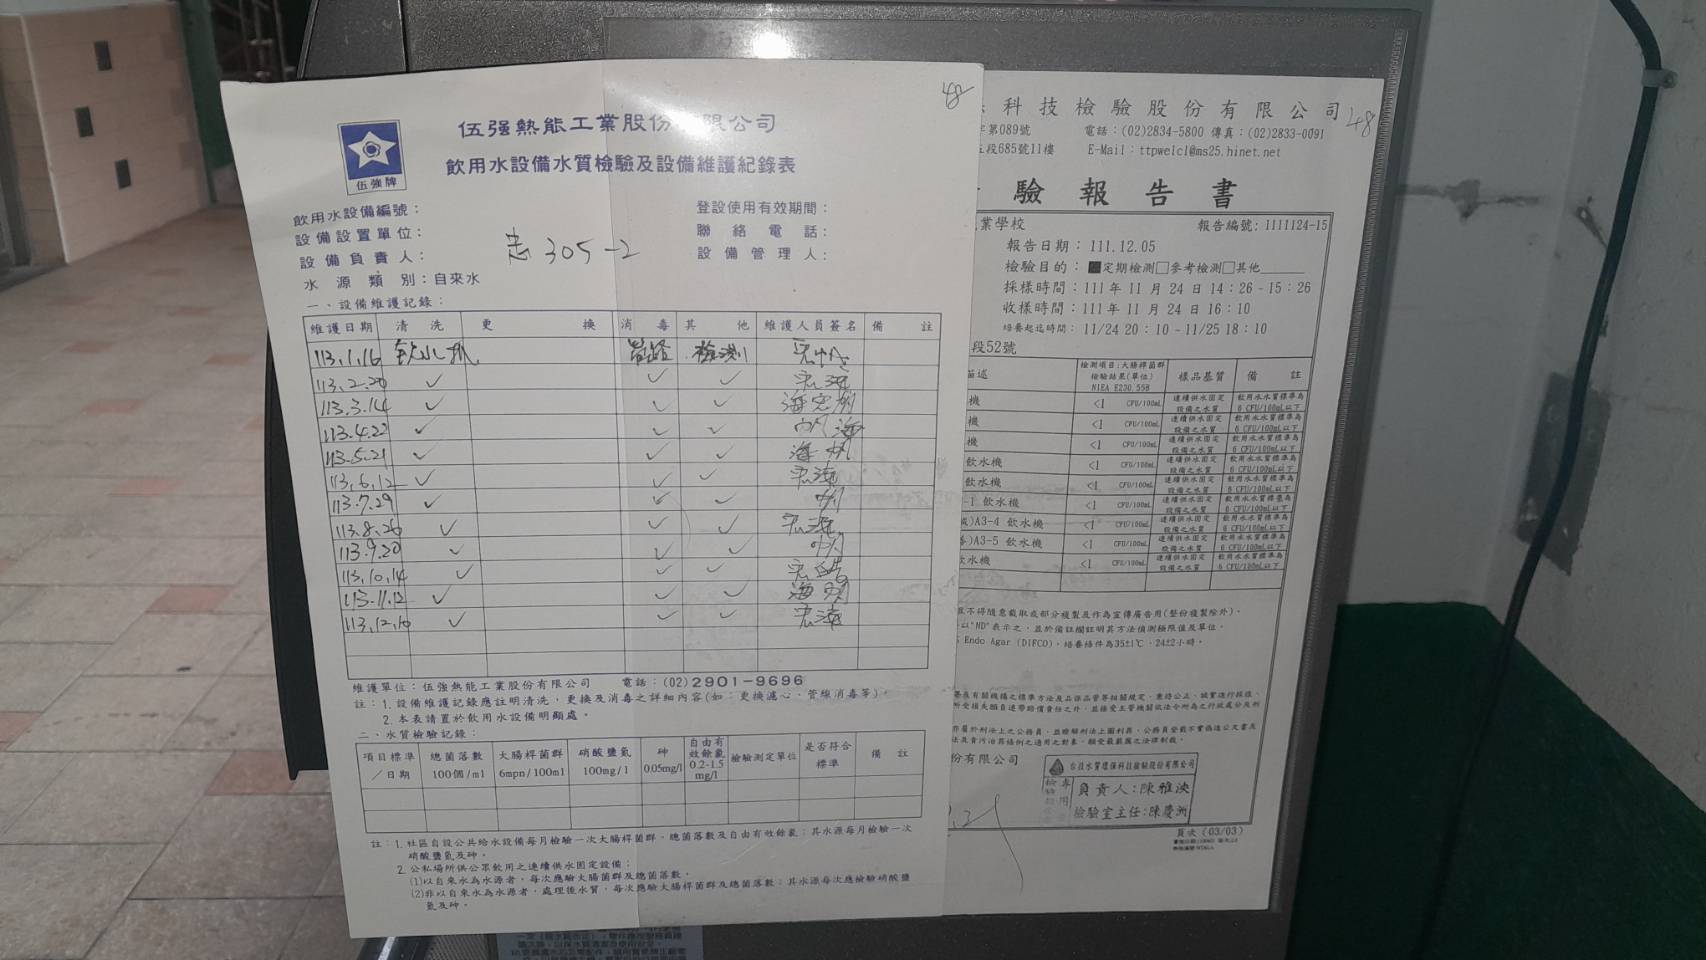 48
伍强熱能工業股份有限公司
飲用水設備水質檢驗及設備維護紀錄表
伍強牌
飲用水設備編號：
設備設置單位：
設備負責人：
水源類別：自來水
忠305-2
登設使用有效期間：
聯絡電話：
設備管理人：
一、設備維護記錄：
維護日期 清洗 更換 消毒 其他 維護人員簽名 備註
113.1.16 飲水機 管路 檢測
113.2.20 ✓ ✓ ✓
113.3.14 ✓ ✓ ✓
113.4.22 ✓ ✓ ✓
113.5.21 ✓ ✓ ✓
113.6.12 ✓ ✓ ✓
113.7.29 ✓ ✓ ✓
113.8.26 ✓ ✓ ✓
113.9.20 ✓ ✓ ✓
113.10.14 ✓ ✓ ✓
113.11.12 ✓ ✓ ✓
113.12.10 ✓ ✓ ✓
維護單位：伍強熱能工業股份有限公司 電話：(02)2901-9696
註：1.設備維護記錄應註明清洗，更換及消毒之詳細內容(如：更換濾心、管線消毒等)。
2.本表請置於飲用水設備明顯處。
二、水質檢驗記錄：
項目標準／日期 總菌落數 100個/ml 大腸桿菌群 6mpn/100ml 硝酸鹽氮 100mg/l 砷 0.05mg/l 自由有效餘氯 0.2-1.5 mg/l 檢驗測定單位 是否符合標準 備註
註：1.社區自設公共給水設備每月檢驗一次大腸桿菌群、總菌落數及自由有效餘氯；其水源每月檢驗一次
硝酸鹽氮及砷。
2.公私場所供公眾飲用之連續供水固定設備：
(1)以自來水為水源者，每次應驗大腸菌群及總菌落數。
(2)非以自來水為水源者，處理後水質，每次應驗大腸桿菌群及總菌落數；其水源每次應檢驗硝酸鹽
氮及砷。
科技檢驗股份有限公司
48
字第089號 電話：(02)2834-5800 傳真：(02)2833-0091
五段685號11樓 E-Mail：ttpwelcl@ms25.hinet.net
驗報告書
業學校 報告編號：1111124-15
報告日期：111.12.05
檢驗目的：■定期檢測□參考檢測□其他
採樣時間：111年11月24日14:26-15:26
收樣時間：111年11月24日16:10
培養起迄時間：11/24 20:10-11/25 18:10
段52號
描述 檢測項目：大腸桿菌群 檢驗結果(單位) NIEA E230.55B 樣品基質 備註
機 <1 CFU/100mL 連續供水固定設備之水質 飲用水水質標準為6 CFU/100mL以下
機 <1 CFU/100mL 連續供水固定設備之水質 飲用水水質標準為6 CFU/100mL以下
機 <1 CFU/100mL 連續供水固定設備之水質 飲用水水質標準為6 CFU/100mL以下
飲水機 <1 CFU/100mL 連續供水固定設備之水質 飲用水水質標準為6 CFU/100mL以下
飲水機 <1 CFU/100mL 連續供水固定設備之水質 飲用水水質標準為6 CFU/100mL以下
-1 飲水機 <1 CFU/100mL 連續供水固定設備之水質 飲用水水質標準為6 CFU/100mL以下
)A3-4 飲水機 <1 CFU/100mL 連續供水固定設備之水質 飲用水水質標準為6 CFU/100mL以下
)A3-5 飲水機 <1 CFU/100mL 連續供水固定設備之水質 飲用水水質標準為6 CFU/100mL以下
飲水機 <1 CFU/100mL 連續供水固定設備之水質 飲用水水質標準為6 CFU/100mL以下
不得隨意截取或部分複製及作為宣傳廣告用(整份複製除外)。
以"ND"表示之，並於備註欄註明其方法偵測極限值及單位。
Endo Agar (DIFCO)，培養條件為35±1℃，24±2小時。
份有限公司
台技水質環保科技檢驗股份有限公司
檢驗專用
負責人：陳雅泱
檢驗室主任：陳慶洲
頁次(03/03)